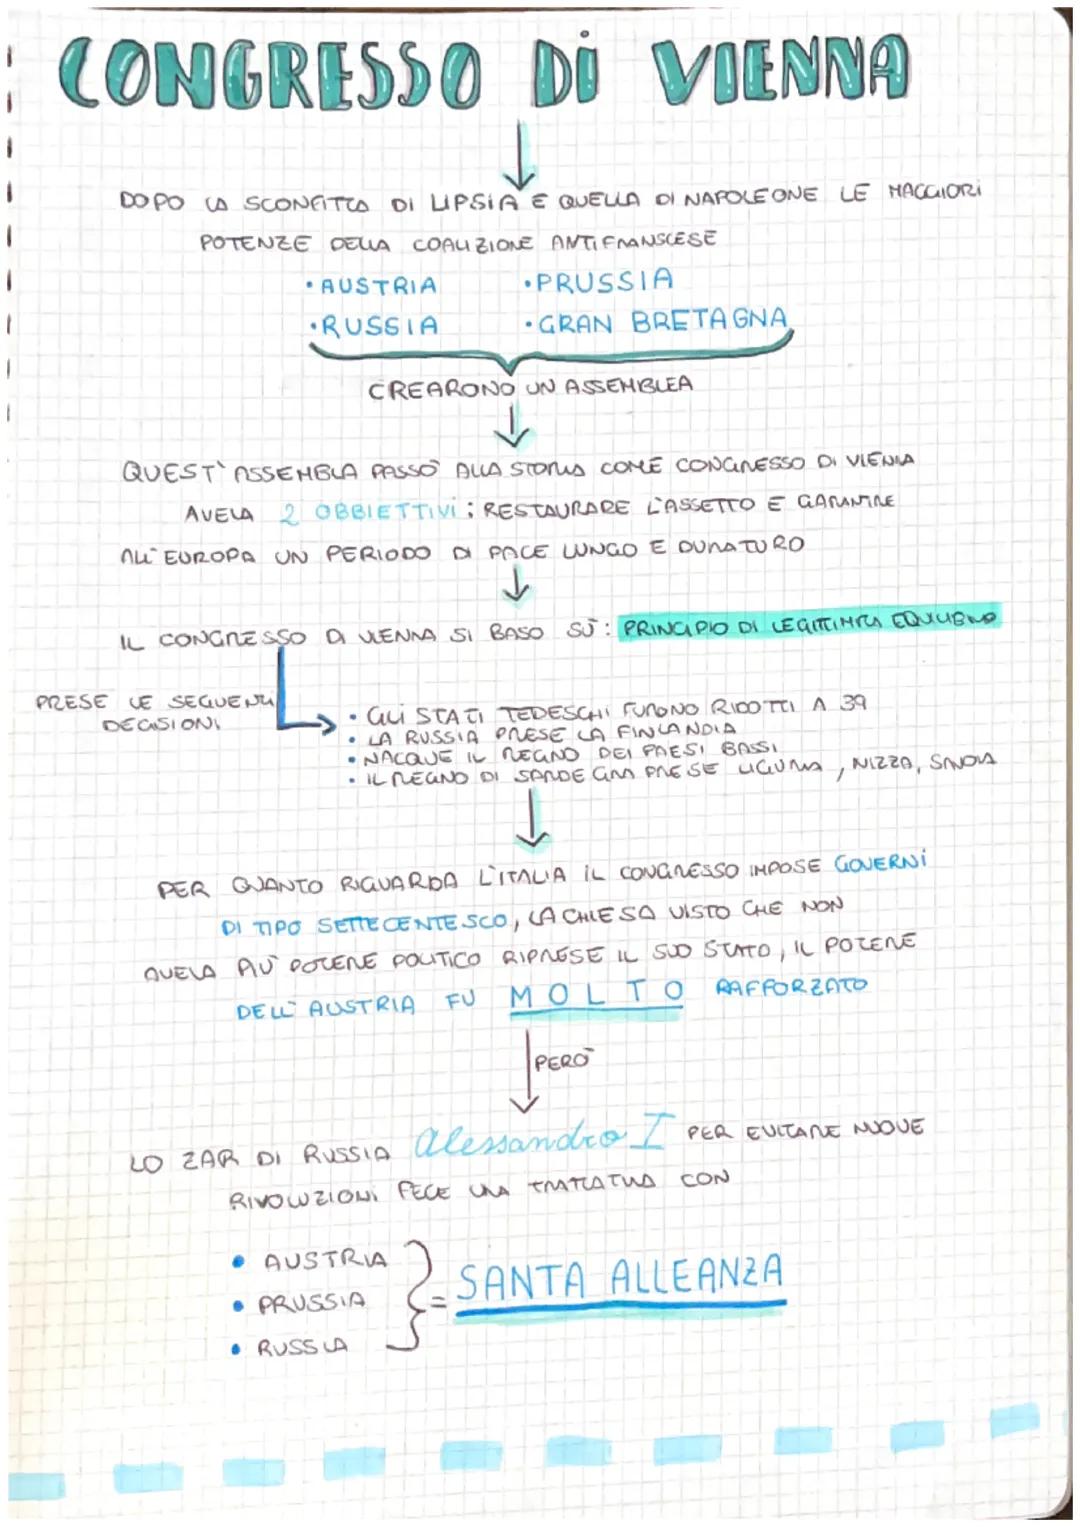 CONGRESSO Di VIENNA
DOPO LA SCONFITTA DI LIPSIA E QUELLA DI NAPOLEONE LE MAGGIORI
POTENZE DELLA COALIZIONE ANTIFRANSCESE
• AUSTRIA
• PRUSSIA
• RUSSIA
• GRAN BRETAGNA
CREARONO UN ASSEMBLEA
QUEST' ASSEMBLA PASSÒ ALLA STORIA COME CONGRESSO DI VIENNA
AVEVA 2 OBBIETTIVI: RESTAURARE L'ASSETTO E GARANTIRE
ALL'EUROPA UN PERIODO DI PACE LUNGO E DURATURO
IL CONGRESSO DI VIENNA SI BASO SÙ: PRINCIPIO DI LEGITTIMITÀ EQUILIBRIO
PRESE LE SEGUENTI
DECISIONI
• GLI STATI TEDESCHI FURONO RIDOTTI A 39
• LA RUSSIA PRESE LA FINLANDIA
• NACQUE IL REGNO DEI PAESI BASSI
• IL REGNO DI SARDEGNA PRESE LIGURIA, NIZZA, SAVOIA
PER QUANTO RIGUARDA L'ITALIA IL CONGRESSO IMPOSE GOVERNI
DI TIPO SETTECENTESCO, LA CHIESA VISTO CHE NON
AVEVA PIÙ POTERE POLITICO RIPRESE IL SUO STATO, IL POTERE
DELL'AUSTRIA FU MOLTO RAFFORZATO
PERÒ
LO ZAR DI RUSSIA Alessandro I PER EVITARE NUOVE
RIVOLUZIONI FECE UNA TRATTATIVA CON
• AUSTRIA
• PRUSSIA
• RUSSIA
= SANTA ALLEANZA